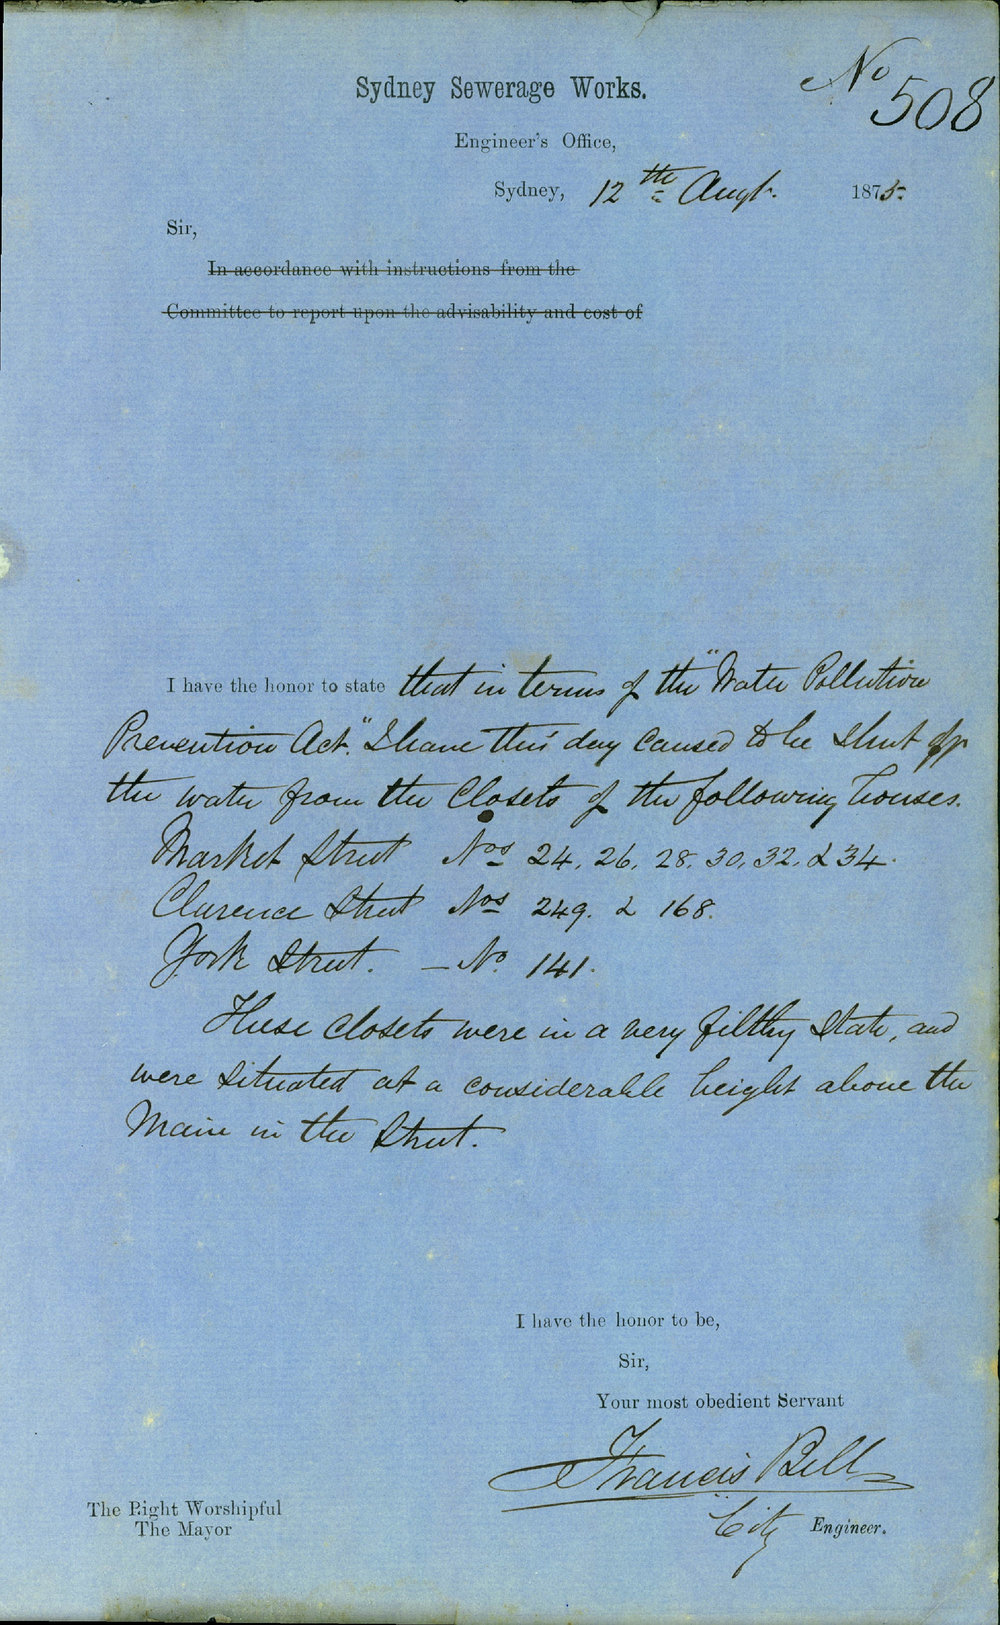 No 508
Sydney Sewerage Works.
Engineer's Office,
Sydney, 12th Augt. 1875.
Sir,
In accordance with instructions from the
Committee to report upon the advisability and cost of
I have the honor to state that in terms of the "Water Pollution
Prevention Act." I have this day caused to be shut off
the water from the Closets of the following houses.
Market Street Nos 24, 26, 28, 30, 32, & 34.
Clarence Street Nos 249. & 168.
York Street. — No. 141.
These closets were in a very filthy state, and
were situated at a considerable height above the
Main in the Street.
I have the honor to be,
Sir,
Your most obedient Servant
Francis Bell
City Engineer.
The Right Worshipful
The Mayor